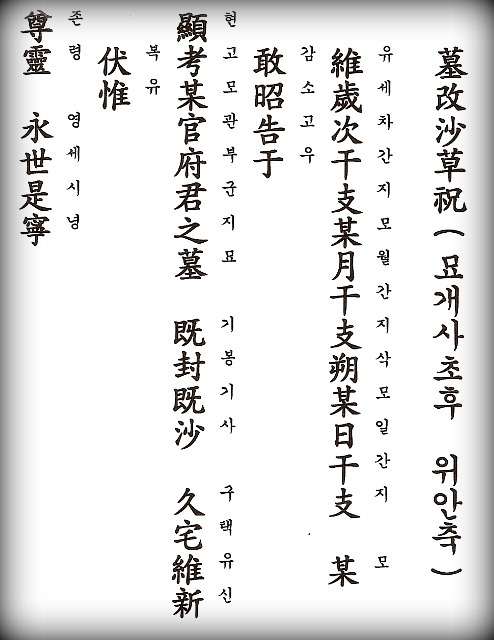 墓改沙草祝(묘개사초후 위안축)
유세차간지모월간지삭모일간지 모
維歲次干支某月干支朔某日干支 某
감소고우
敢昭告于
현고모관부군지묘 기봉기사 구택유신
顯考某官府君之墓 既封既沙 久宅維新
복유
伏惟
존령 영세시녕
尊靈 永世是寧